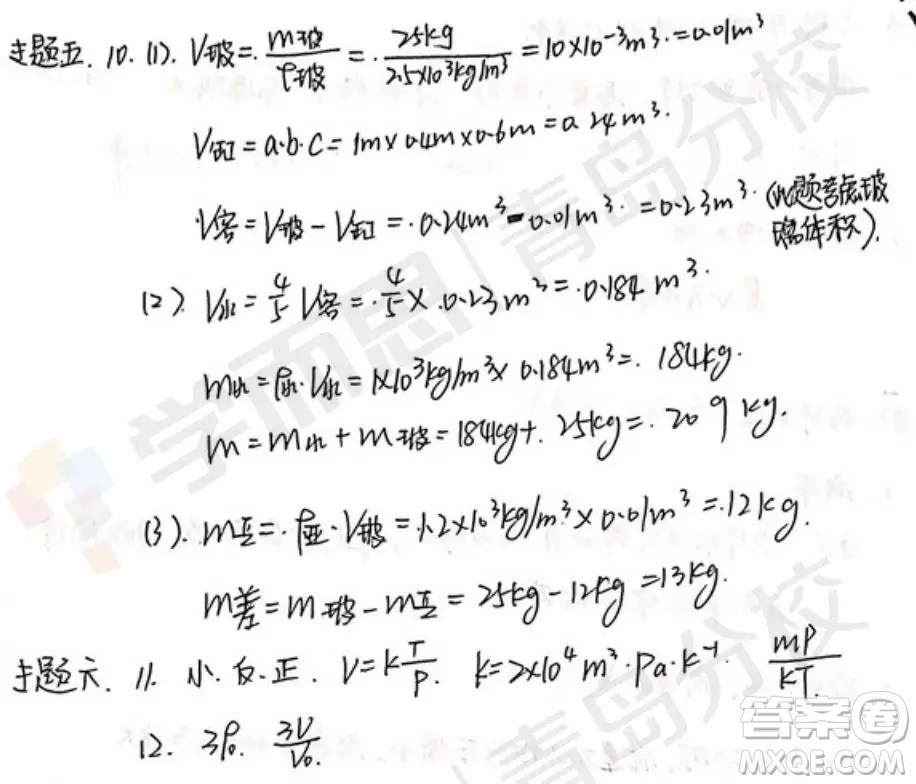 主题五. 10. (1). V玻 = m玻/ρ玻 = 25kg/2.5×10³kg/m³ = 10×10⁻³m³ = 0.01m³
V缸 = a·b·c = 1m×0.4m×0.6m = 0.24m³.
V容 = V玻 - V缸 = 0.24m³ - 0.01m³ = 0.23m³. (此题考虑玻璃体积).
(2). V水 = 4/5 V容 = 4/5 × 0.23m³ = 0.184m³.
m水 = ρ水·V水 = 1×10³kg/m³ × 0.184m³ = 184kg.
m = m水 + m玻 = 184kg + 25kg = 209kg.
(3). m亚 = ρ亚·V玻 = 1.2×10³kg/m³ × 0.01m³ = 12kg.
m差 = m玻 - m亚 = 25kg - 12kg = 13kg.
主题六. 11. 小. 反. 正. V = K T/P. K = 2×10⁴m³·Pa·K⁻¹. mP/KT.
12. 3ρ₀. 3V/V₀.
学而思 青岛分校
青岛分校
答案圈
MXQE.COM